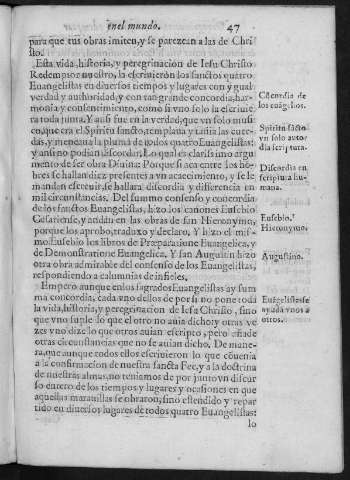 en el mundo. 47
para que tus obras imiten, y se parezcan a las de Chri
sto.
Esta vida, historia, y peregrinacion de Iesu Christo
Redemptor nuestro, la escriuieron los sanctos quatro
Euangelistas en diuersos tiempos y lugares con ygual
verdad y authoridad, y con tan grande concordia, har-
monia y consentimiento, como si vno solo la escriuie
ra toda junta. Y assi fue en la verdad, que vn solo musi
co, que era el Spiritu sancto, templaua y tañia las cuer-
das, y meneaua la pluma de todos quatro Euangelistas:
y ansi no podian discordar. Lo qual es clarissimo argu
mento de ser obra Diuina: Porque si aca entre los hō-
bres se hallan diez presentes a vn acaecimiento, y se le
mandē escreuir, se hallara discordia y differencia en
mil circunstancias. Del summo consenso y concordia
de los sanctos Euangelistas, hizo los cañones Eusebio
Cesariense, y andan en las obras de san Hieronymo,
porque los aprobo, traduxo y declaro. Y hizo el mis-
mo Eusebio los libros de Præparatione Euangelica, y
de Demonstratione Euangelica. Y san Augustin hizo
otra obra admirable del consenso de los Euangelistas,
respondiendo a calumnias de infieles.
Empero aunque en los sagrados Euangelistas ay sum
ma concordia, cada vno dellos de por si no pone toda
la vida, historia, y peregrinacion de Iesu Christo, sino
que vno suple lo que el otro no auia dicho: y otras ve
zes vno dize lo que otros auian escripto, pero añade
otras circunstancias que no se auian dicho. De mane-
ra, que aunque todos ellos escriuieron lo que cōuenia
a la confirmacion de nuestra sancta Fee, y a la doctrina
de nuestras almas, no teniamos de por junto vn discur
so entero de los tiempos y lugares y ocasiones en que
aquellas marauillas se obraron, sino estendido y repar
tido en diuersos lugares de todos quatro Euangelistas:
lo
Cōcordia de
los euāgelios.
Spiritu sācto
vn solo auto-
dia scriptura.
Discordia en
scriptura hu-
mana.
Eusebio.
Hieronymo.
Augustino.
Euāgelistas se
ayuda vnos a
otros.